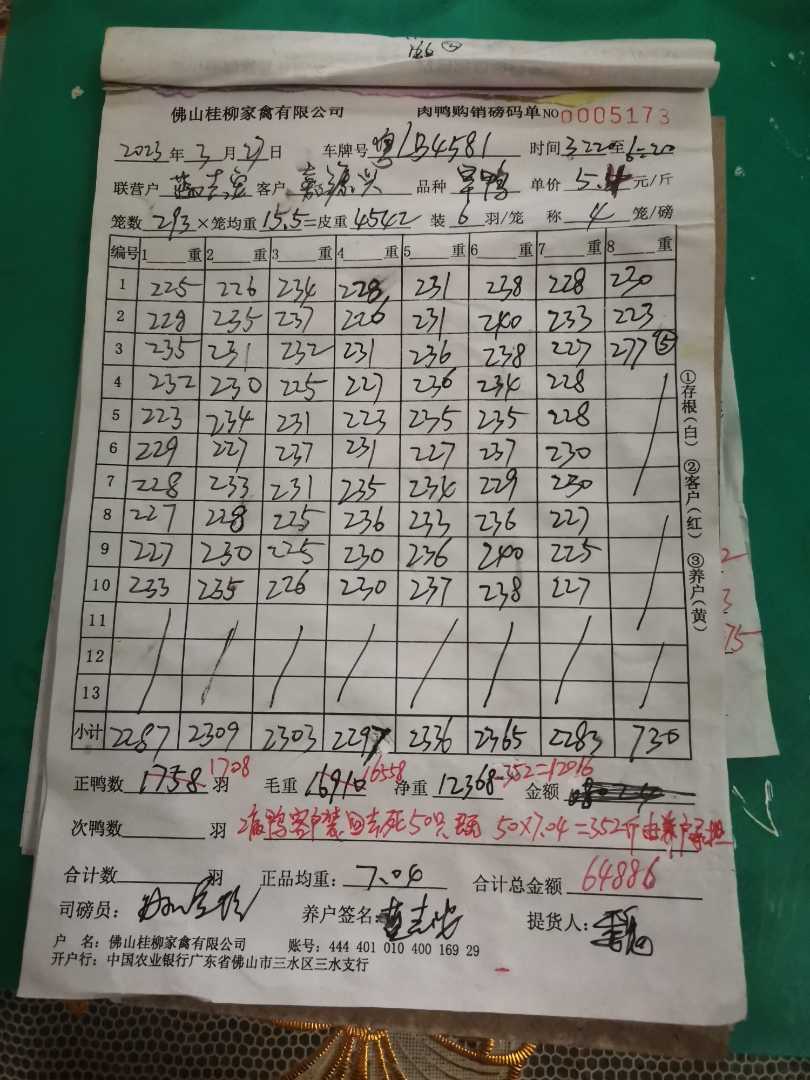 佛山桂柳家禽有限公司 肉鸭购销磅码单 NO 0005173
2023年3月27日 车牌号 粤 4581 时间 3:22 至 6:20
联营户 客户 品种 单鸭 单价 5. 元/斤
笼数 293 ×笼均重 15.5 =皮重 4542 装 6 羽/笼 称 4 笼/磅
编号 1 重 2 重 3 重 4 重 5 重 6 重 7 重 8 重
1 225 226 234 228 231 238 228 230
2 229 235 237 226 231 240 233 223
3 235 231 232 231 236 238 227 277 ⑤
4 232 230 225 227 236 234 228
5 223 234 231 223 235 235 228
6 229 227 237 231 227 237 230
7 228 233 231 235 234 229 230
8 227 228 225 236 233 236 227
9 227 230 225 230 236 240 225
10 233 235 226 230 237 238 227
11
12
13
小计 2287 2309 2303 2297 2336 2365 2283 730
正鸭数 1758 1708 羽 毛重 16910 16558 净重 12368 -352=12016 金额
次鸭数 羽 鸭客户装回去死50只 50×7.04=352斤由养户承担
合计数 羽 正品均重: 7.04 合计总金额 64886
司磅员: 养户签名: 提货人:
户 名: 佛山桂柳家禽有限公司 账号: 444 401 010 400 169 29
开户行: 中国农业银行广东省佛山市三水区三水支行
①存根(白) ②客户(红) ③养户(黄)